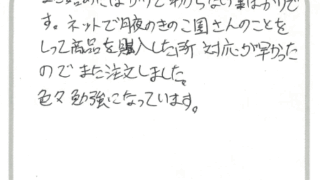 す。ネットで月夜のきのこ園さんのことを
しって商品を購入した所 対応が早かった
ので また注文しました。
色々勉強になっています。